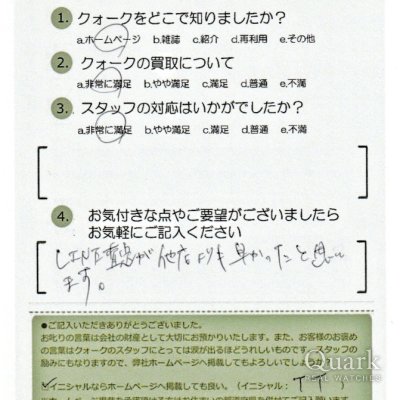 1. クォークをどこで知りましたか?
a.ホームページ b.雑誌 c.紹介 d.再利用 e.その他
2. クォークの買取について
a.非常に満足 b.やや満足 c.満足 d.普通 e.不満
3. スタッフの対応はいかがでしたか?
a.非常に満足 b.やや満足 c.満足 d.普通 e.不満
4. お気付きな点やご要望がございましたら
お気軽にご記入ください
LINE査定が他店よりも早かったと思い
ます。
●ご記入いただきありがとうございました。
お叱りの言葉は会社の財産として大切にお預かりいたします。また、お客様のお褒め
の言葉はクォークのスタッフにとっては涙が出るほどうれしいものです。スタッフの
励みにもなりますので、弊社ホームページへ掲載してもよろしいでしょうか?
イニシャルならホームページへ掲載しても良い。(イニシャル: T.T
Quark
FINE WATCHES